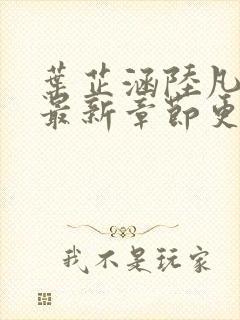 葉芷涵陸凡
最新章節更
我不是玩家